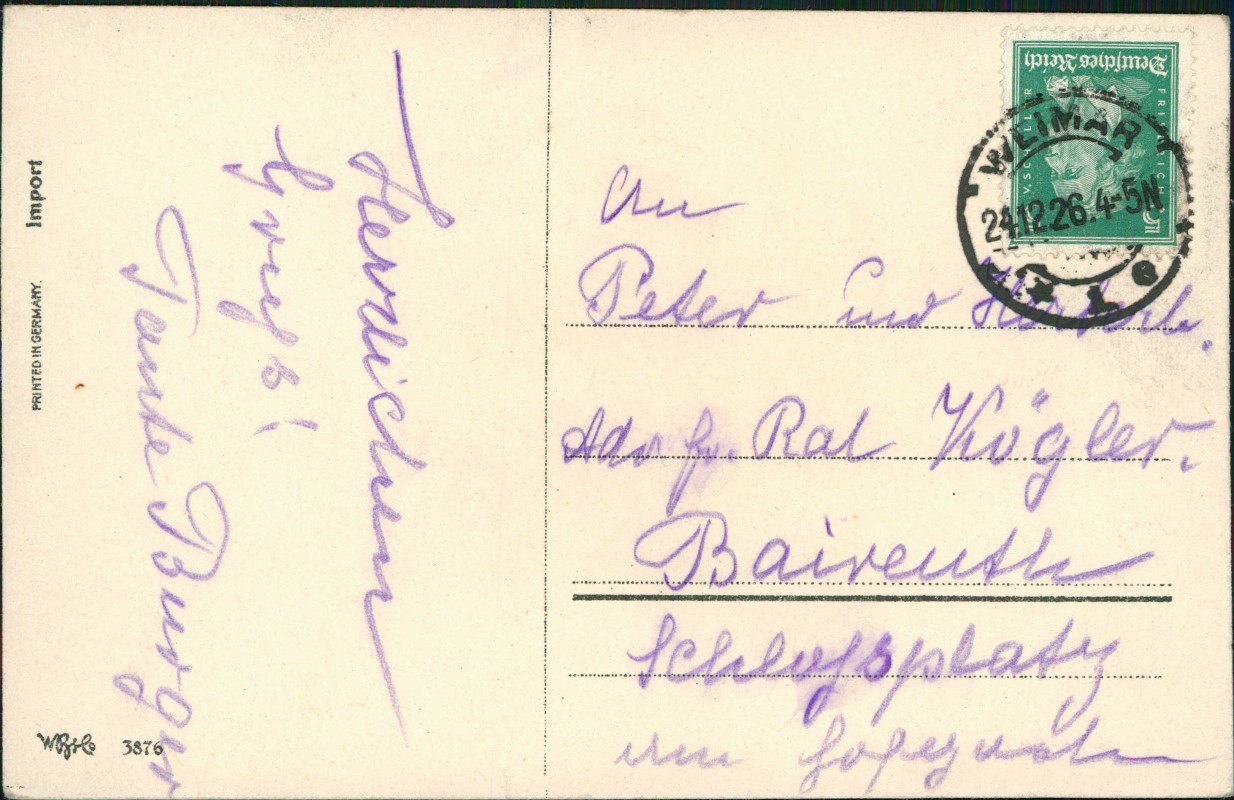 Import
PRINTED IN GERMANY.
3876
Herzlichen
Gruß!
Tante Burger
Deutsches Reich
FRIEDRICH
V. SCHILLER
5
WEIMAR
24.12.26.4-5N
* 1 e
An
Peter und
Adr. Hr. Rat Kögler.
Baireuth
Schloßplatz
im